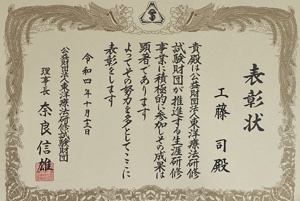 表彰状
工藤 司 殿
貴殿は公益財団法人東洋療法研修
試験財団が推進する生涯研修
事業に積極的に参加しその成果は
顕著であります
よってその努力を多としてここに
表彰をします
令和四年十月十三日
公益財団法人東洋療法研修試験財団
理事長 奈良信雄